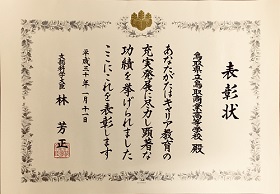 表彰状
鳥取県立鳥取商業高等学校 殿
あなたがたはキャリア教育の
充実発展に尽力し顕著な
功績を挙げられました
ここにこれを表彰します
平成三十年一月十一日
文部科学大臣 林 芳正